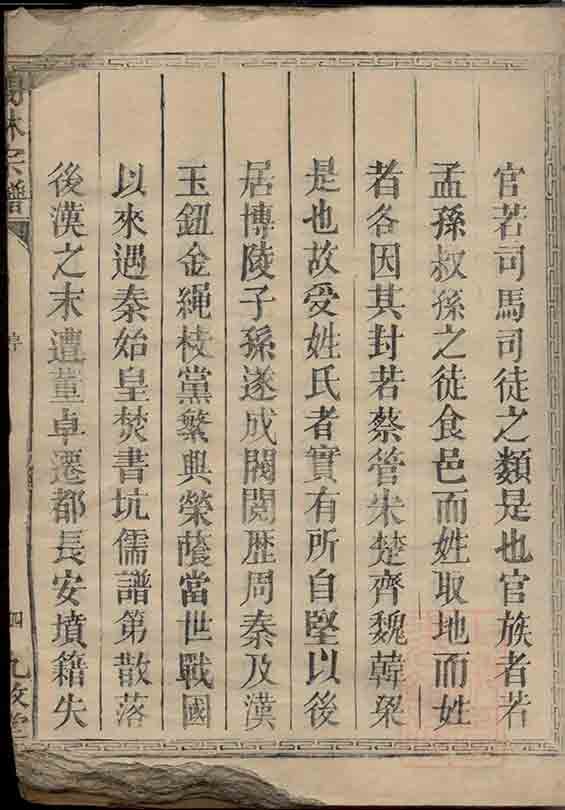 官若司馬司徒之類是也官族者若
孟孫叔孫之徒食邑而姓取地而姓
者各因其封若蔡管朱楚齊魏韓梁
是也故受姓氏者實有所自堅以後
居博陵子孫遂成閥閱歷周秦及漢
玉鈕金繩枝黨繁興榮蔭當世戰國
以來遇秦始皇焚書坑儒譜第散落
後漢之末遭董卓遷都長安墳籍失
林宗譜
四
九牧堂